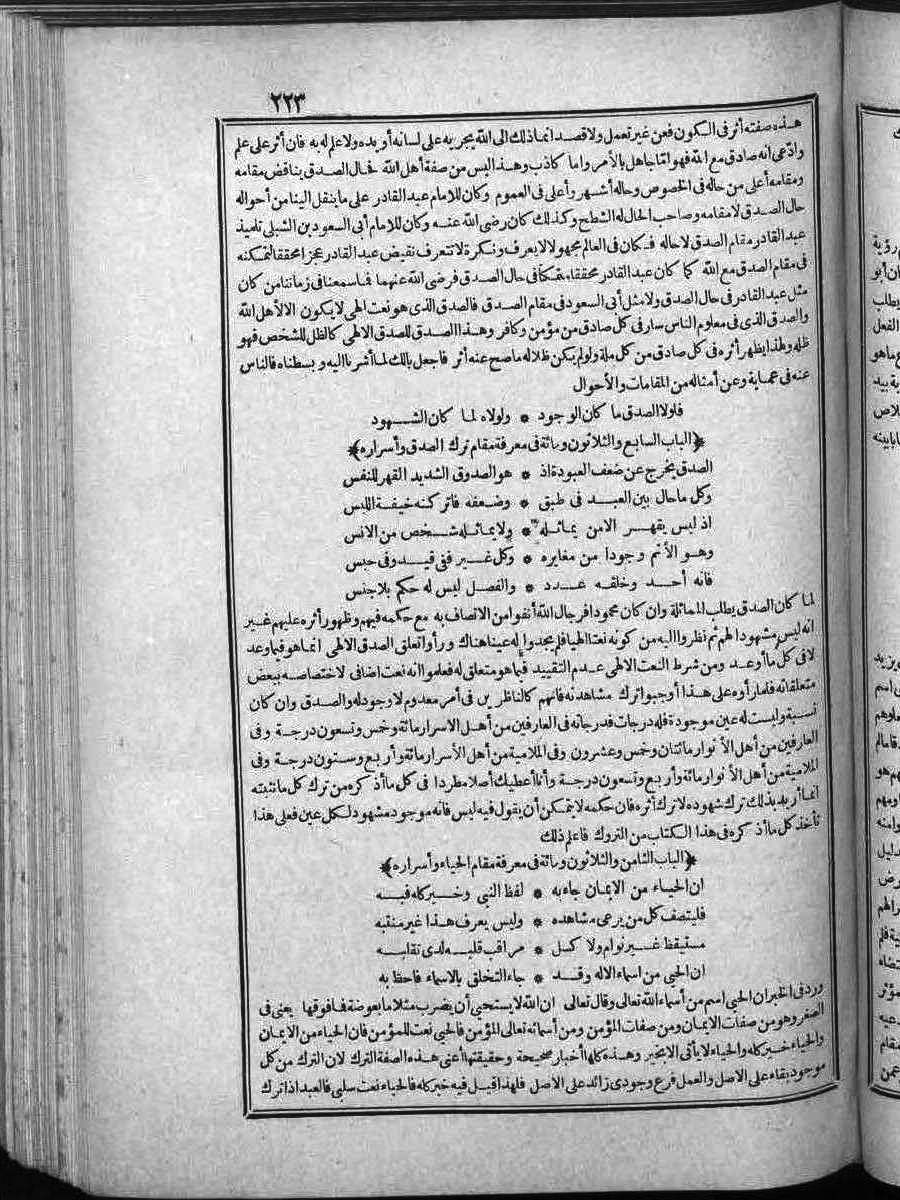 ٢٢٣
هذه صفته أثر في الكون فعن غير تعمل ولا قصد انما ذلك الى الله يجريه على لسانه أو يده ولا علم له به فان أثر على علم
وادّعى انه صادق مع الله فهو اما جاهل بالأمر واما كاذب وهذا ليس من صفة أهل الله فحال الصدق يناقض مقامه
ومقامه أعلى من حاله في الخصوص وحاله أشهر وأعلى في العموم وكان للامام عبد القادر على ما ينقل الينا من أحواله
حال الصدق لا مقامه وصاحب الحال له الشطح وكذلك كان رضى الله عنه وكان للامام أبى السعود بن الشبلى تلميذ
عبد القادر مقام الصدق لا حاله فكان في العالم مجهولا لا يعرف ونكرة لا تتعرف نقيض عبد القادر عجزا محققا لتمكنه
في مقام الصدق مع الله كما كان عبد القادر محققا متمكنا في حال الصدق فرضى الله عنهما فما سمعنا في زماننا من كان
مثل عبد القادر في حال الصدق ولا مثل أبى السعود في مقام الصدق فالصدق الذى هو نعت الهى لا يكون الا لأهل الله
والصدق الذى في معلوم الناس سار في كل صادق من مؤمن وكافر وهذا الصدق للصدق الالهى كالظل للشخص فهو
ظله ولهذا يظهر أثره في كل صادق من كل ملة ولو لم يكن ظلا له ما صح عنه أثر فاجعل بالك لما أشرنا اليه وبسطناه فالناس
عنه في عماية وعن أمثاله من المقامات والأحوال
فلولا الصدق ما كان الوجود * ولولاه لما كان الشهود
﴿الباب السابع والثلاثون ومائة في معرفة مقام ترك الصدق وأسراره﴾
الصدق يخرج عن ضعف العبودة اذ * هو الصدوق الشديد القهر للنفس
وكل ما حال بين العبد في طبق * وضعفه فاتركنه خيفة اللبس
اذ ليس يقهر الامن يماثله * ولا يماثله شخص من الانس
وهو الأتم وجودا من مغايره * وكل غير ففى قيد وفى حبس
فانه أحد وخلقه عدد * والفصل ليس له حكم بلا جنس
لما كان الصدق يطلب المماثلة وان كان محمودا فرجال الله أنفوا من الاتصاف به مع حكمه فيهم وظهور أثره عليهم غير
انه ليس مشهودا لهم ثم نظروا اليه من كونه نعتا الهيا فلم يجدوا له عينا هناك ورأوا تعلق الصدق الالهى انما هو فيما وعد
لا في كل ما أوعد ومن شرط النعت الالهى عدم التقييد فيما هو متعلق له فعلموا انه نعت اضافى لاختصاصه ببعض
متعلقاته فلما رأوه على هذا أوجبوا ترك مشاهدته فانهم كالناظرين في أمر معدوم لا وجود له والصدق وان كان
نسبة وليست له عين موجودة فله درجات فدرجاته في العارفين من أهل الاسرار مائة وخمس وتسعون درجة وفى
العارفين من أهل الأنوار مائتان وخمس وعشرون وفى الملامية من أهل الأسرار مائة وأربع وستون درجة وفى
الملامية من أهل الأنوار مائة وأربع وتسعون درجة وأنا أعطيك أصلا مطردا في كل ما أذكره من ترك كل ما نثبته
انما أريد بذلك ترك شهوده لا ترك أثره فان حكمه لا يتمكن أن يقول فيه ليس فانه موجود مشهود لكل عين فعلى هذا
تأخذ كل ما أذكره في هذا الكتاب من التروك فاعلم ذلك
﴿الباب الثامن والثلاثون ومائة في معرفة مقام الحياء وأسراره﴾
ان الحياء من الايمان جاء به * لفظ النبى وخير كله فيه
فليتصف كل من يرعى مشاهده * وليس يعرف هذا غير منتبه
مستيقظ غير نوام ولا كسل * مراقب قلبه لدى تقلبه
ان الحيى من اسماء الاله وقد * جاء التخلق بالاسماء فاحظ به
ورد في الخبر ان الحيى اسم من أسماء الله تعالى وقال تعالى ان الله لا يستحيى أن يضرب مثلا ما بعوضة فما فوقها يعنى في
الصغر وهو من صفات الايمان ومن صفات المؤمن ومن أسمائه تعالى المؤمن فالحيى نعت للمؤمن فان الحياء من الايمان
والحياء خير كله والحياء لا يأتى الا بخير وهذه كلها أخبار صحيحة وحقيقتها أعنى هذه الصفة الترك لان الترك من كل
موجود بقاء على الاصل والعمل فرع وجودى زائد على الاصل فلهذا قيل فيه خير كله فالحياء نعت سلبى فالعبد اذا ترك